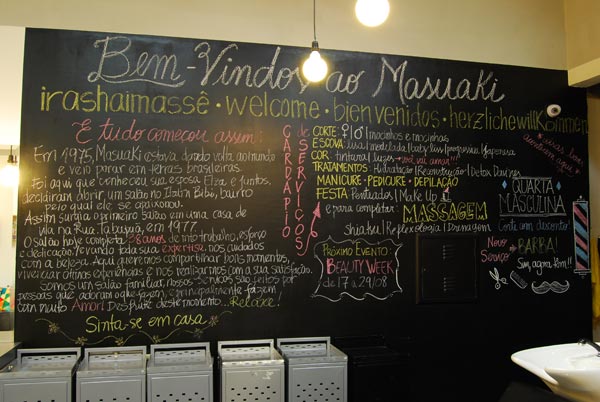 Bem-Vindos ao Masuaki
irashaimassê • welcome • bienvenidos • herzlichewillkommen
E tudo começou assim:
Em 1975, Masuaki estava dando volta ao mundo
e veio parar em terras brasileiras.
Foi aqui que conheceu sua esposa Elza e juntos,
decidiram abrir um salão no Itaim Bibi, bairro
pelo qual se apaixonou.
Assim surgia o primeiro salão em uma casa de
vila na Rua Tabapuã, em 1977.
O salão hoje completa 38 anos de muito trabalho, esforço
e dedicação, levando toda sua expertise, nos cuidados
com a beleza. Aqui queremos compartilhar bons momentos,
vivenciar ótimas experiências e nos realizarmos com a sua satisfação.
Somos um salão familiar, nossos serviços são feitos por
pessoas que adoram o que fazem e principalmente fazem
com muito Amor! Desfrute deste momento... Relaxe!
Sinta-se em casa
CARDÁPIO
de SERVIÇOS
CORTE: mocinhos e mocinhas
ESCOVA: lisa | modelada | baby liss | progressiva | japonesa
COR: tintura | luzes → você vai amar!!!
TRATAMENTOS: Hidratação | Reconstrução | Detox Davines
MANICURE • PEDICURE • DEPILAÇÃO
FESTA Penteados | Make Up
e para completar: MASSAGEM
shiatsu | Reflexologia | Drenagem
PRÓXIMO EVENTO:
BEAUTY WEEK
de 17 a 29/08
QUARTA
MASCULINA
Corte com desconto!
Novo
Serviço →
BARBA!
Sim, agora tem!!!